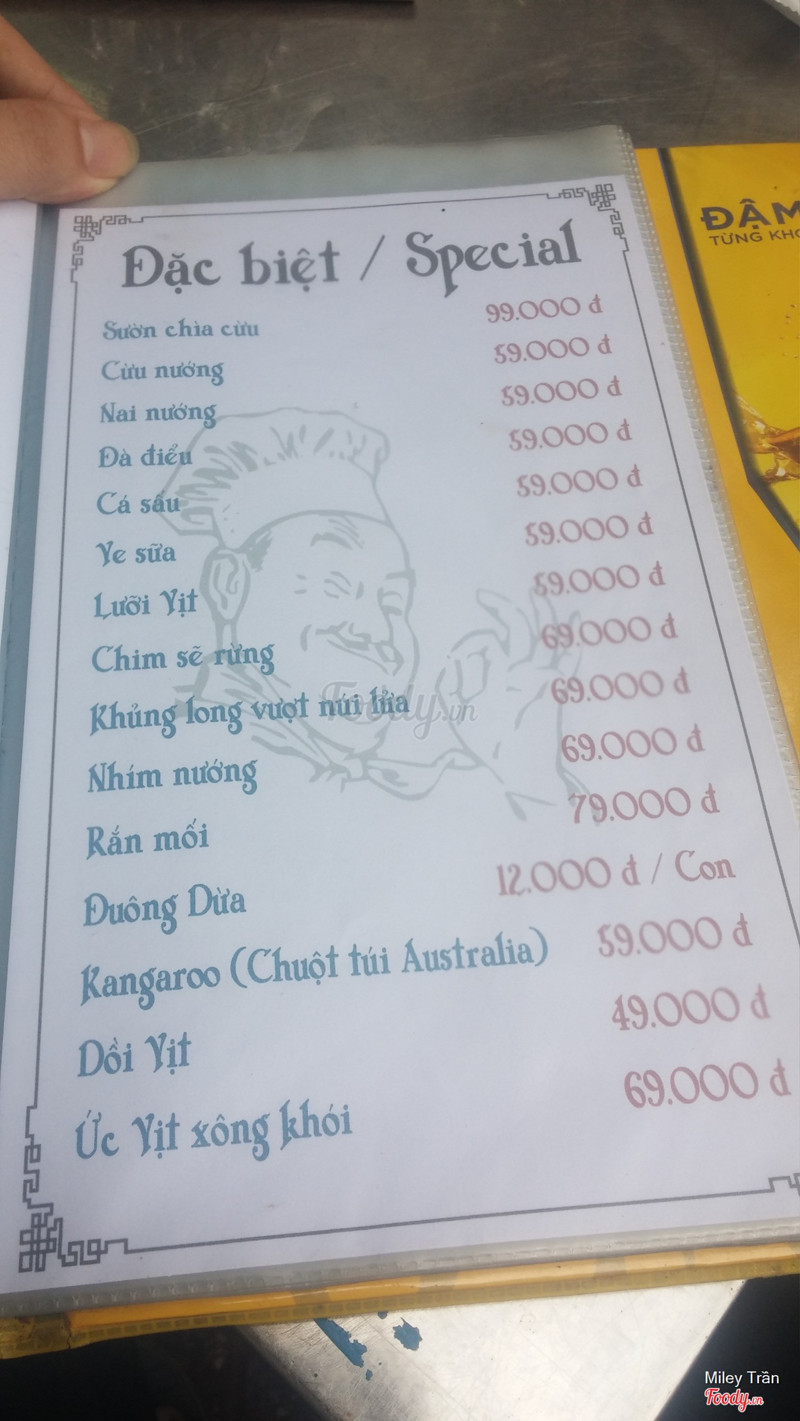 Đặc biệt / Special
Sườn chìa cừu 99.000 đ
Cừu nướng 59.000 đ
Nai nướng 59.000 đ
Đà điểu 59.000 đ
Cá sấu 59.000 đ
Ve sữa 59.000 đ
Lưỡi Vịt 59.000 đ
Chim sẽ rừng 69.000 đ
Khủng long vượt núi lửa 69.000 đ
Nhím nướng 69.000 đ
Rắn mối 79.000 đ
Đuông Dừa 12.000 đ / Con
Kangaroo (Chuột túi Australia) 59.000 đ
Dồi Vịt 49.000 đ
Ức Vịt xông khói 69.000 đ
ĐẬM
TỪNG
Foody.vn
Miley Trần
Foody.vn